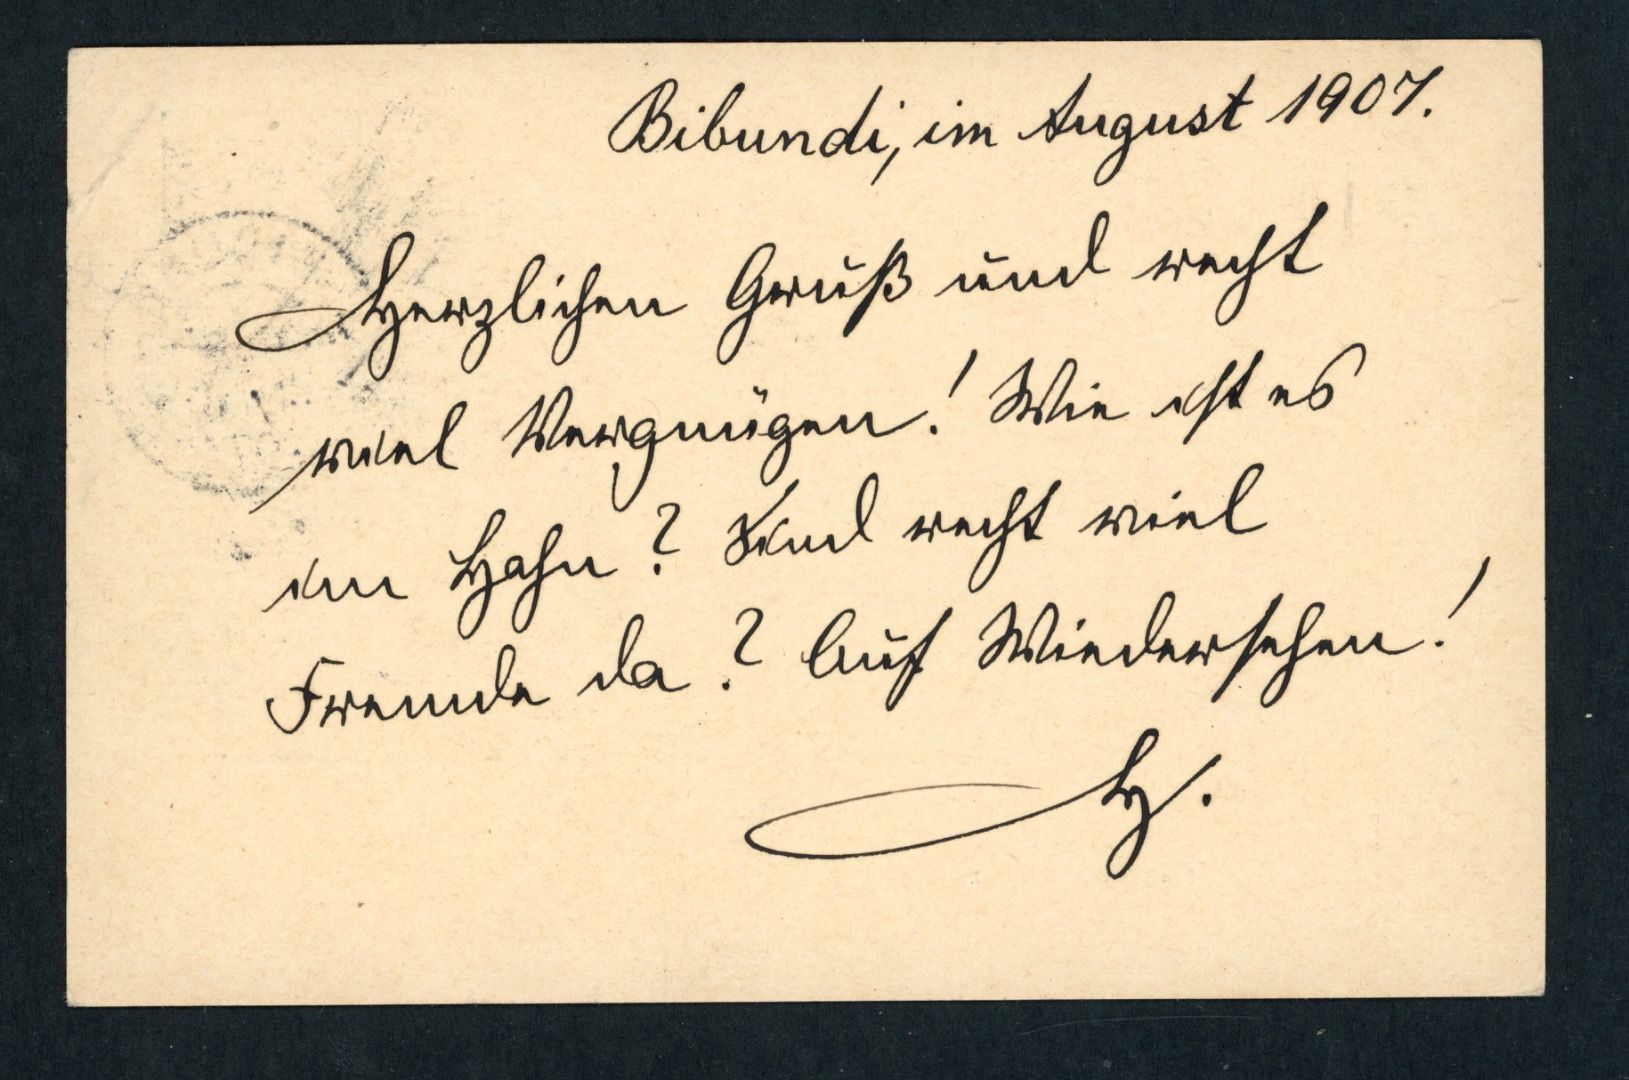 Bibundi, im August 1907.
Herzlichen Gruß und recht
viel Vergnügen! Wie ist es
im Hahn? Sind recht viel
Fremde da? Auf Wiedersehen!
H.